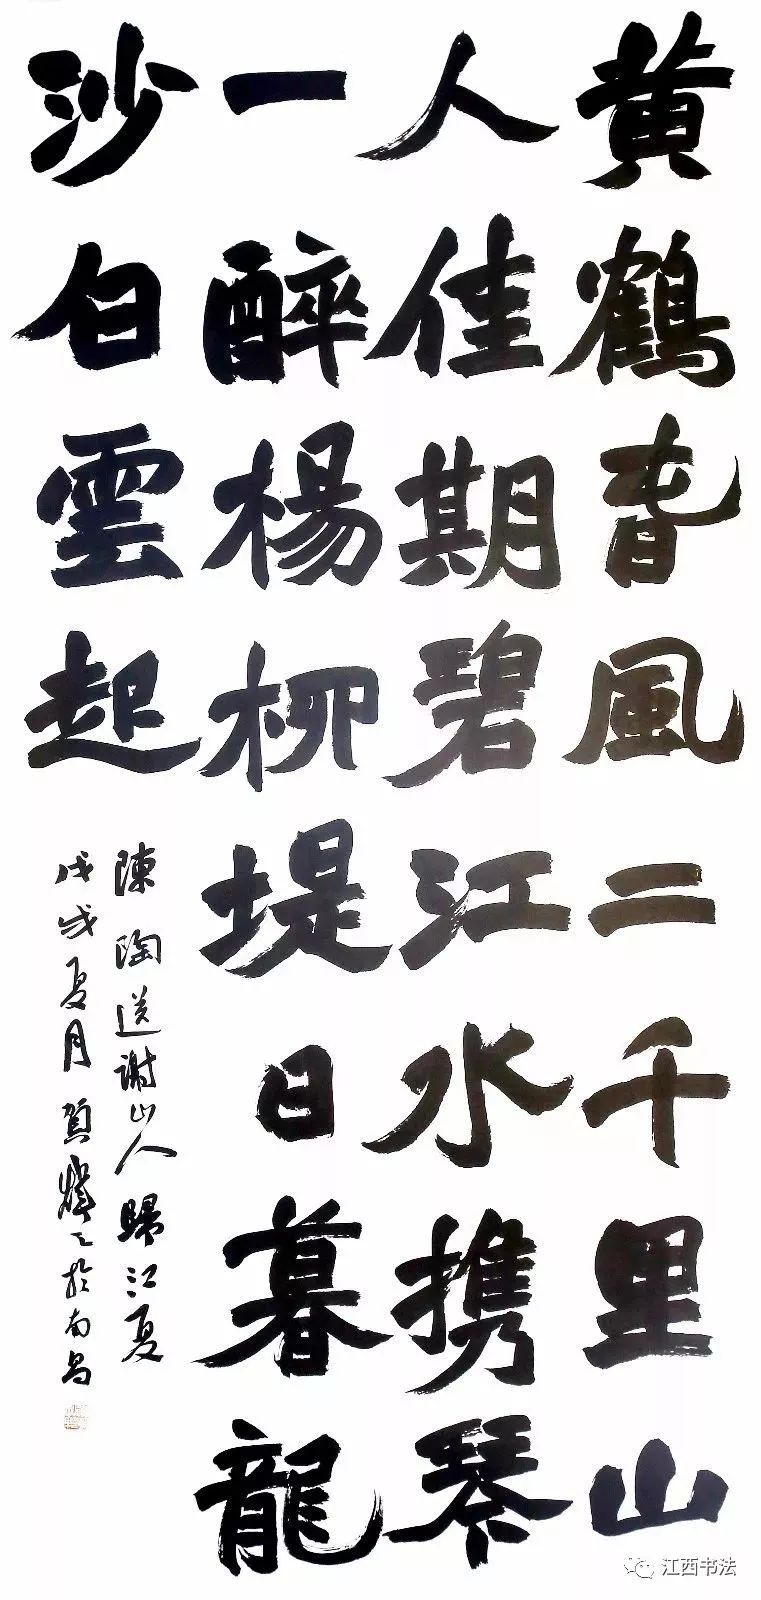 黄鶴春風二千里山
人佳期碧江水携琴
一醉楊柳堤日暮龍
沙白雲起
陳陶送謝山人歸江夏
戊戌夏月賀煒於南昌
江西书法